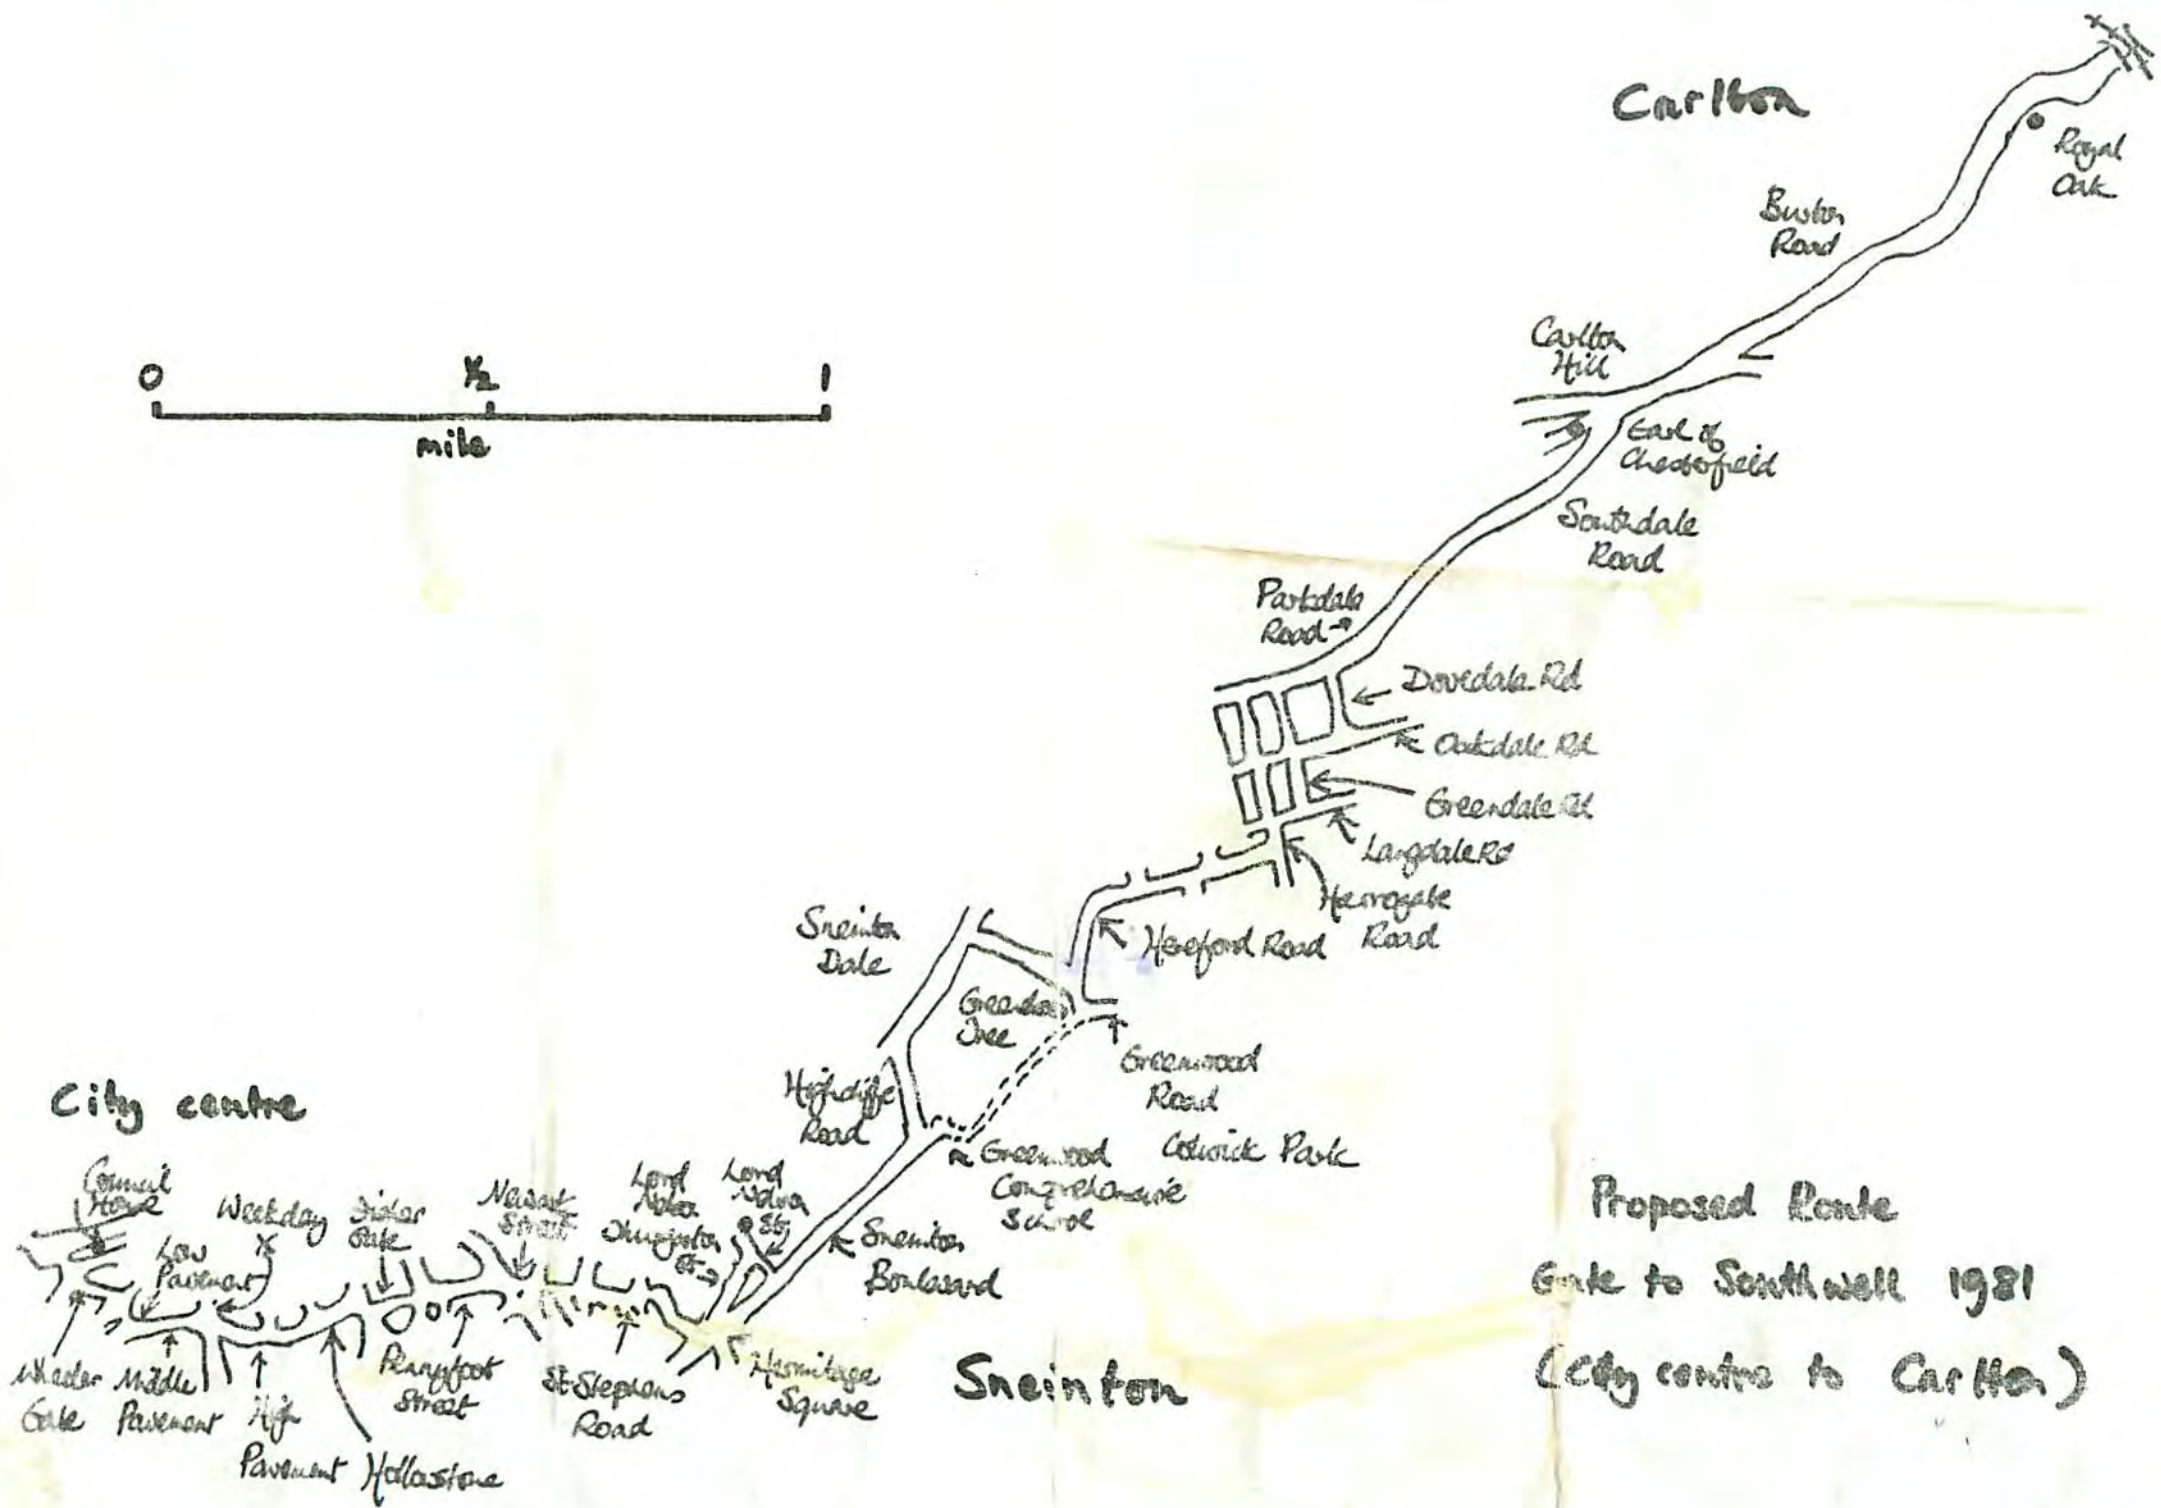 Carlton
Royal
Oak
Burton
Road
0 ½ 1
mile
Carlton
Hill
Earl of
Chesterfield
Southdale
Road
Parkdale
Road
Dovedale Rd
Oakdale Rd
Greendale Rd
Langdale Rd
Harrogate
Road
Hereford Road
Sneinton
Dale
Greenwood
Road
Highcliffe
Road
Colwick Park
Greenwood
Comprehensive
School
City centre
Council
House
Weekday
X
Fisher
Gate
Newark
Street
Lord
Nelson
St
Lord
Nelson
St
Low
Pavement
Sneinton
Boulevard
Wheeler
Gate
Middle
Pavement
High
Pavement
Hollowstone
Pennyfoot
Street
St Stephens
Road
Hermitage
Square
Sneinton
Proposed Route
Gate to Southwell 1981
(City centre to Carlton)